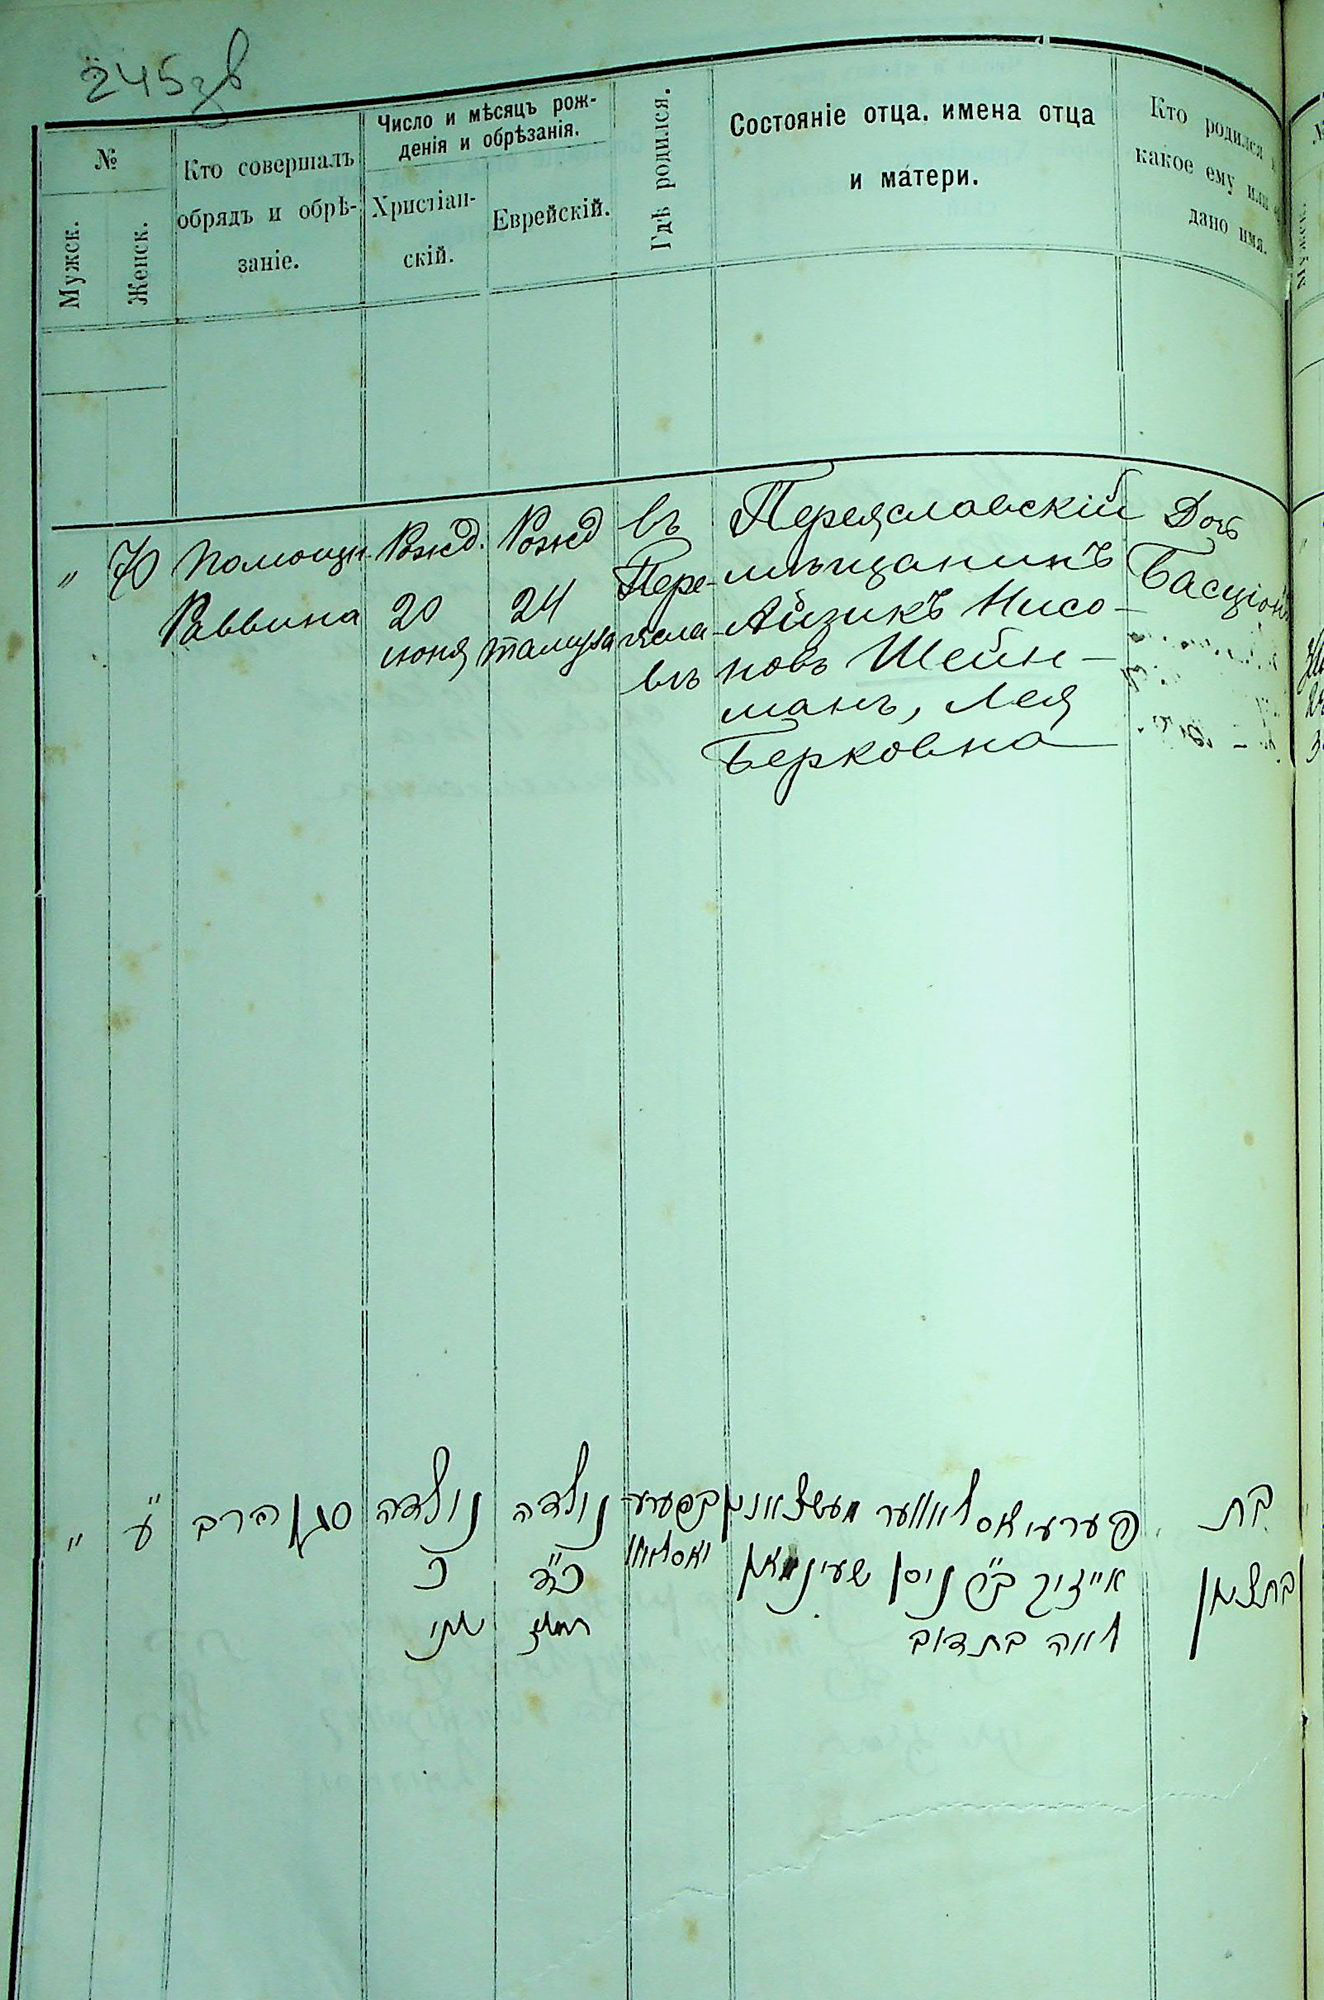 245 зв
№
Мужск.
Женск.
Кто совершалъ
обрядъ и обрѣ-
заніе.
Число и мѣсяцъ рож-
денія и обрѣзанія.
Христіан-
скій.
Еврейскій.
Гдѣ родился.
Состояніе отца. имена отца
и матери.
Кто родился
какое ему или
дано имя.
"
70
Помощн.
Раввина
Рожд.
20
июня
Рожд
24
тамуза
въ
Пере-
ясла-
влъ
Переяславскій
мѣщанинъ
Айзикъ Нисо-
новъ Шейн-
манъ, Лея
Берковна
Дочь
Басціонъ
"
ע
סגן הרב
נולדה
כ
יוני
נולדה
כ"ד
תמוז
בפערע
יאסלאוו
פערעיאסלאווער מעשצאנין
אייזיק ב"ר ניסן שעינמאן
לאה בת דוב
בת
בת ציון